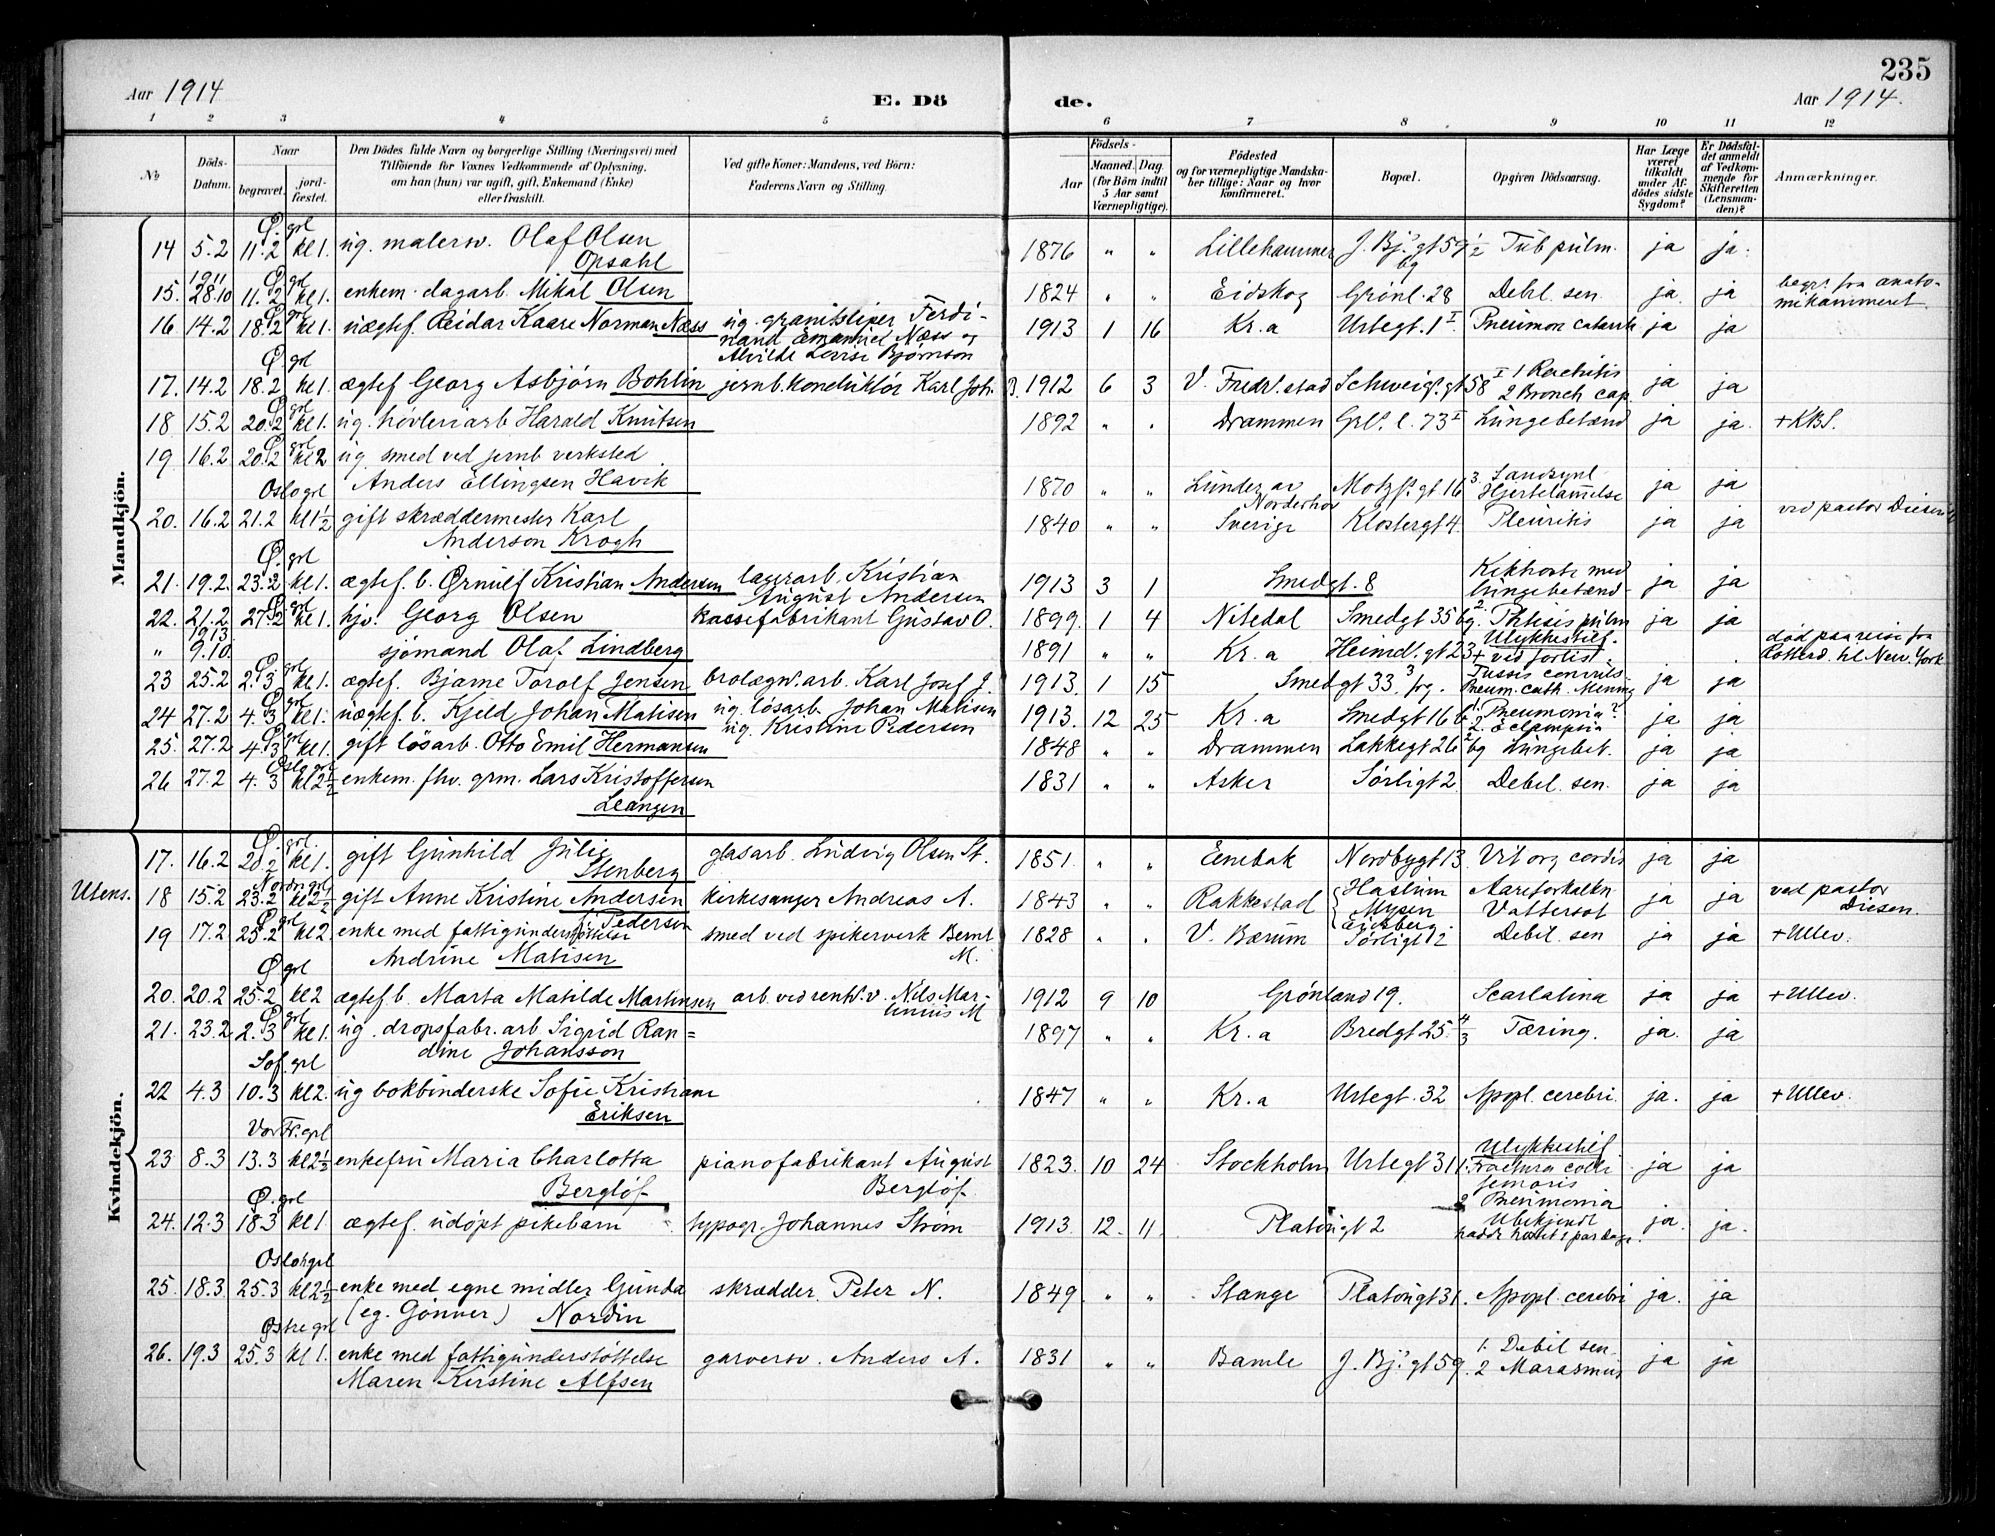 235
Aar 1914
E. Dö
de.
Aar 1914.
1 2 3 4 5 6 7 8 9 10 11 12
No
Döds-Datum.
Naar
begravet.
jord-fæstet.
Den Dödes fulde Navn og borgerlige Stilling (Næringsvei) med
Tilföiende for Voxnes Vedkommende af Oplysning,
om han (hun) var ugift, gift, Enkemand (Enke)
eller fraskilt.
Ved gifte Koner: Mandens, ved Börn:
Faderens Navn og Stilling.
Födsels-
Aar
Maaned. Dag.
(for Börn indtil
5 Aar samt
Værnepligtige).
Födested
og for værnepligtige Mandska-
ber tillige: Naar og hvor
konfirmeret.
Bopæl.
Opgiven Dödsaarsag.
Har Læge
været
tilkaldt
under Af-
dödes sidste
Sygdom?
Er Dödsfal-
det anmeldt
af Vedkom-
mende for
Skifteretten
(Lensman-
den)?
Anmærkninger.
Mandkjön.
Ø. grl
14 5.2 11.2 kl 1. ug. malersv. Olaf Olsen 1876 " " Lillehammer J. Bj.s gt 59 1/2 Tub pulm. ja ja.
Opsahl bg
1911 Ø. grl
15. 28.10 11.2 kl 1. enkem. dagarb. Mikal Olsen 1824 " " Eidskog Grönl. 28 Debil. sen. ja. ja begr. fra anato-
mikammeret.
Ø. grl
16 14.2 18.2 kl 1. uægtef. Reidar Kaare Norman Næss ug. granitsliper Ferdi- 1913 1 16 Kr.a Urtegt. 1 I Pneumon catarrh ja ja
nand Emanuel Næss og
Alvilde Lovise Bjørnson
Ø. grl
17. 14.2 18.2 kl 1. ægtef Georg Asbjörn Bohlin jernb. konduktör Karl Joh. B. 1912 6 3 V. Fredr. stad Schweigs. gt 58 I 1 Rachitis ja ja
2 Bronch cap.
Ø grl
18 15.2 20.2 kl 1. ug. hövleriarb Harald Knutsen 1892 " " Drammen Grl.s l. 73 I Lungebetænd ja ja. + KBS.
19 16.2 20.2 kl 2 ug smed ved jernb verksted
Anders Ellingsen Havik 1870 " " Lunder av Motzf. gt 16 3. Sandsynl. ja ja
Norderhov Hjertelammelse
Oslo grl
20. 16.2 21.2 kl 1 1/2 gift skræddermester Karl 1840 " " Sverige Klostergt 4. Pleuritis ja ja ved pastor Diesen
Anderson Krogh
Ø. grl
21. 19.2. 23.2 kl 1. ægtef. b. Ørnulf Kristian Andersen lagerarb. Kristian 1913 3 1 Smedgt. 8 Kikhoste med ja ja
August Andersen lungebetænd.
22. 21.2 27.2 kl 1. hjv. Georg Olsen kassefabrikant Gustav O. 1899. 1 4 Nitedal Smedgt 35 bg. 2. Phtisis pulm ja ja
1913
" 9.10. sjömand Olaf Lindberg 1891 " " Kr.a Heimd. gt 23 Ulykkestilf. død paa reise fra
+ ved forlis Rotterd. til New. York.
Ø. grl
23 25.2 2.3 kl 1. ægtef. Bjarne Torolf Jensen brolægn. arb. Karl Josef J. 1913. 1 15 Smedgt 33 3 frg. Tussis convuls. ja ja
Pneum. cath. Mening
24 27.2 4.3 kl 1. uægtef. b. Kjeld Johan Matisen ug. lösarb. Johan Matisen 1913. 12 25 Kr.a Smedgt 16 b 1. Pneumonia? ja ja
ug. Kristine Pedersen 2. Eclampsia
25. 27.2 4.3 kl 1. gift lösarb. Otto Emil Hermansen 1848 " " Drammen Lakkegt 26 2 bg Lungebet. ja ja
Oslo grl
26 27.2 4.3 kl 2 1/2 enkem. fhv. grm. Lars Kristoffersen 1831 " " Asker Sörligt 2. Debil. sen. ja ja
Leangen
Kvindekjön.
Ø. grl.
17. 16.2 20.2 kl 1. gift Gunhild Julie glasarb. Ludvig Olsen St. 1851. " " Enebak Nordbygt 13. Vit org cordis ja ja
Stenberg
Utens. Nordre grl
18 15.2 23.2 kl 2 1/2 gift Anne Kristine Andersen kirkesanger Andreas A. 1843 " " Rakkestad Haslum Aareforkalkn ja ja ved pastor
f. Pedersen Mysen Vattersot Diesen.
Eidsberg
Ø. grl
19 17.2 25.2 kl 2. enke med fattigunderstøttelse smed ved spikerverk Bernt 1828 " " V. Bærum Sörligt 2 Debil. sen ja ja + Ullev.
Andrine Matisen M.
Ø grl
20. 20.2 25.2 kl 2 ægtef b. Marta Matilde Martinsen arb. ved renh.v. Nils Mar- 1912 9 10 Grönland 19. Scarlatina ja ja + Ullev.
tinius M
Ø grl
21. 23.2 2.3 kl 1. ug. dropsfabr. arb Sigrid Ran= 1897 " " Kr.a Bredgt 25 4/3 Tæring. ja. ja
dine Johansson
Sof. grl
22 4.3 10.3 kl 2. ug bokbinderske Sofie Kristiane 1847 " " Kr.a Urtegt. 32 Apopl. cerebri. ja. ja + Ullev.
Eriksen
Vor Fr. grl
23 8.3 13.3 kl 2 1/2 enkefru Maria Charlotta pianofabrikant August 1823. 10 24 Stockholm Urtegt 31 Ulykkestilf ja ja
Berglöf Berglöf. 1. Fractura colli
femoris
2 Pneumonia
Ø. grl
24. 12.3 18.3 kl 1 ægtef. udöpt pikebarn typogr. Johannes Ström 1913. 12. 11 Platousgt 2 Ubekjendt ja. ja.
hadde hostet et par dage.
Oslo grl
25. 18.3 25.3 kl 2 1/2 enke med egne midler Gunda skrædder Peter N. 1849. " " Stange Platousgt 31. Apopl. cerebri ja. ja
(eg. Gonner) Nordin
Østre grl
26. 19.3 25.3 kl 1. enke med fattigunderstöttelse garversv. Anders A. 1831 " " Bamle J. Bj.s gt 59. 1. Debil sen ja ja
Maren Kirstine Alfsen 2 Marasmus